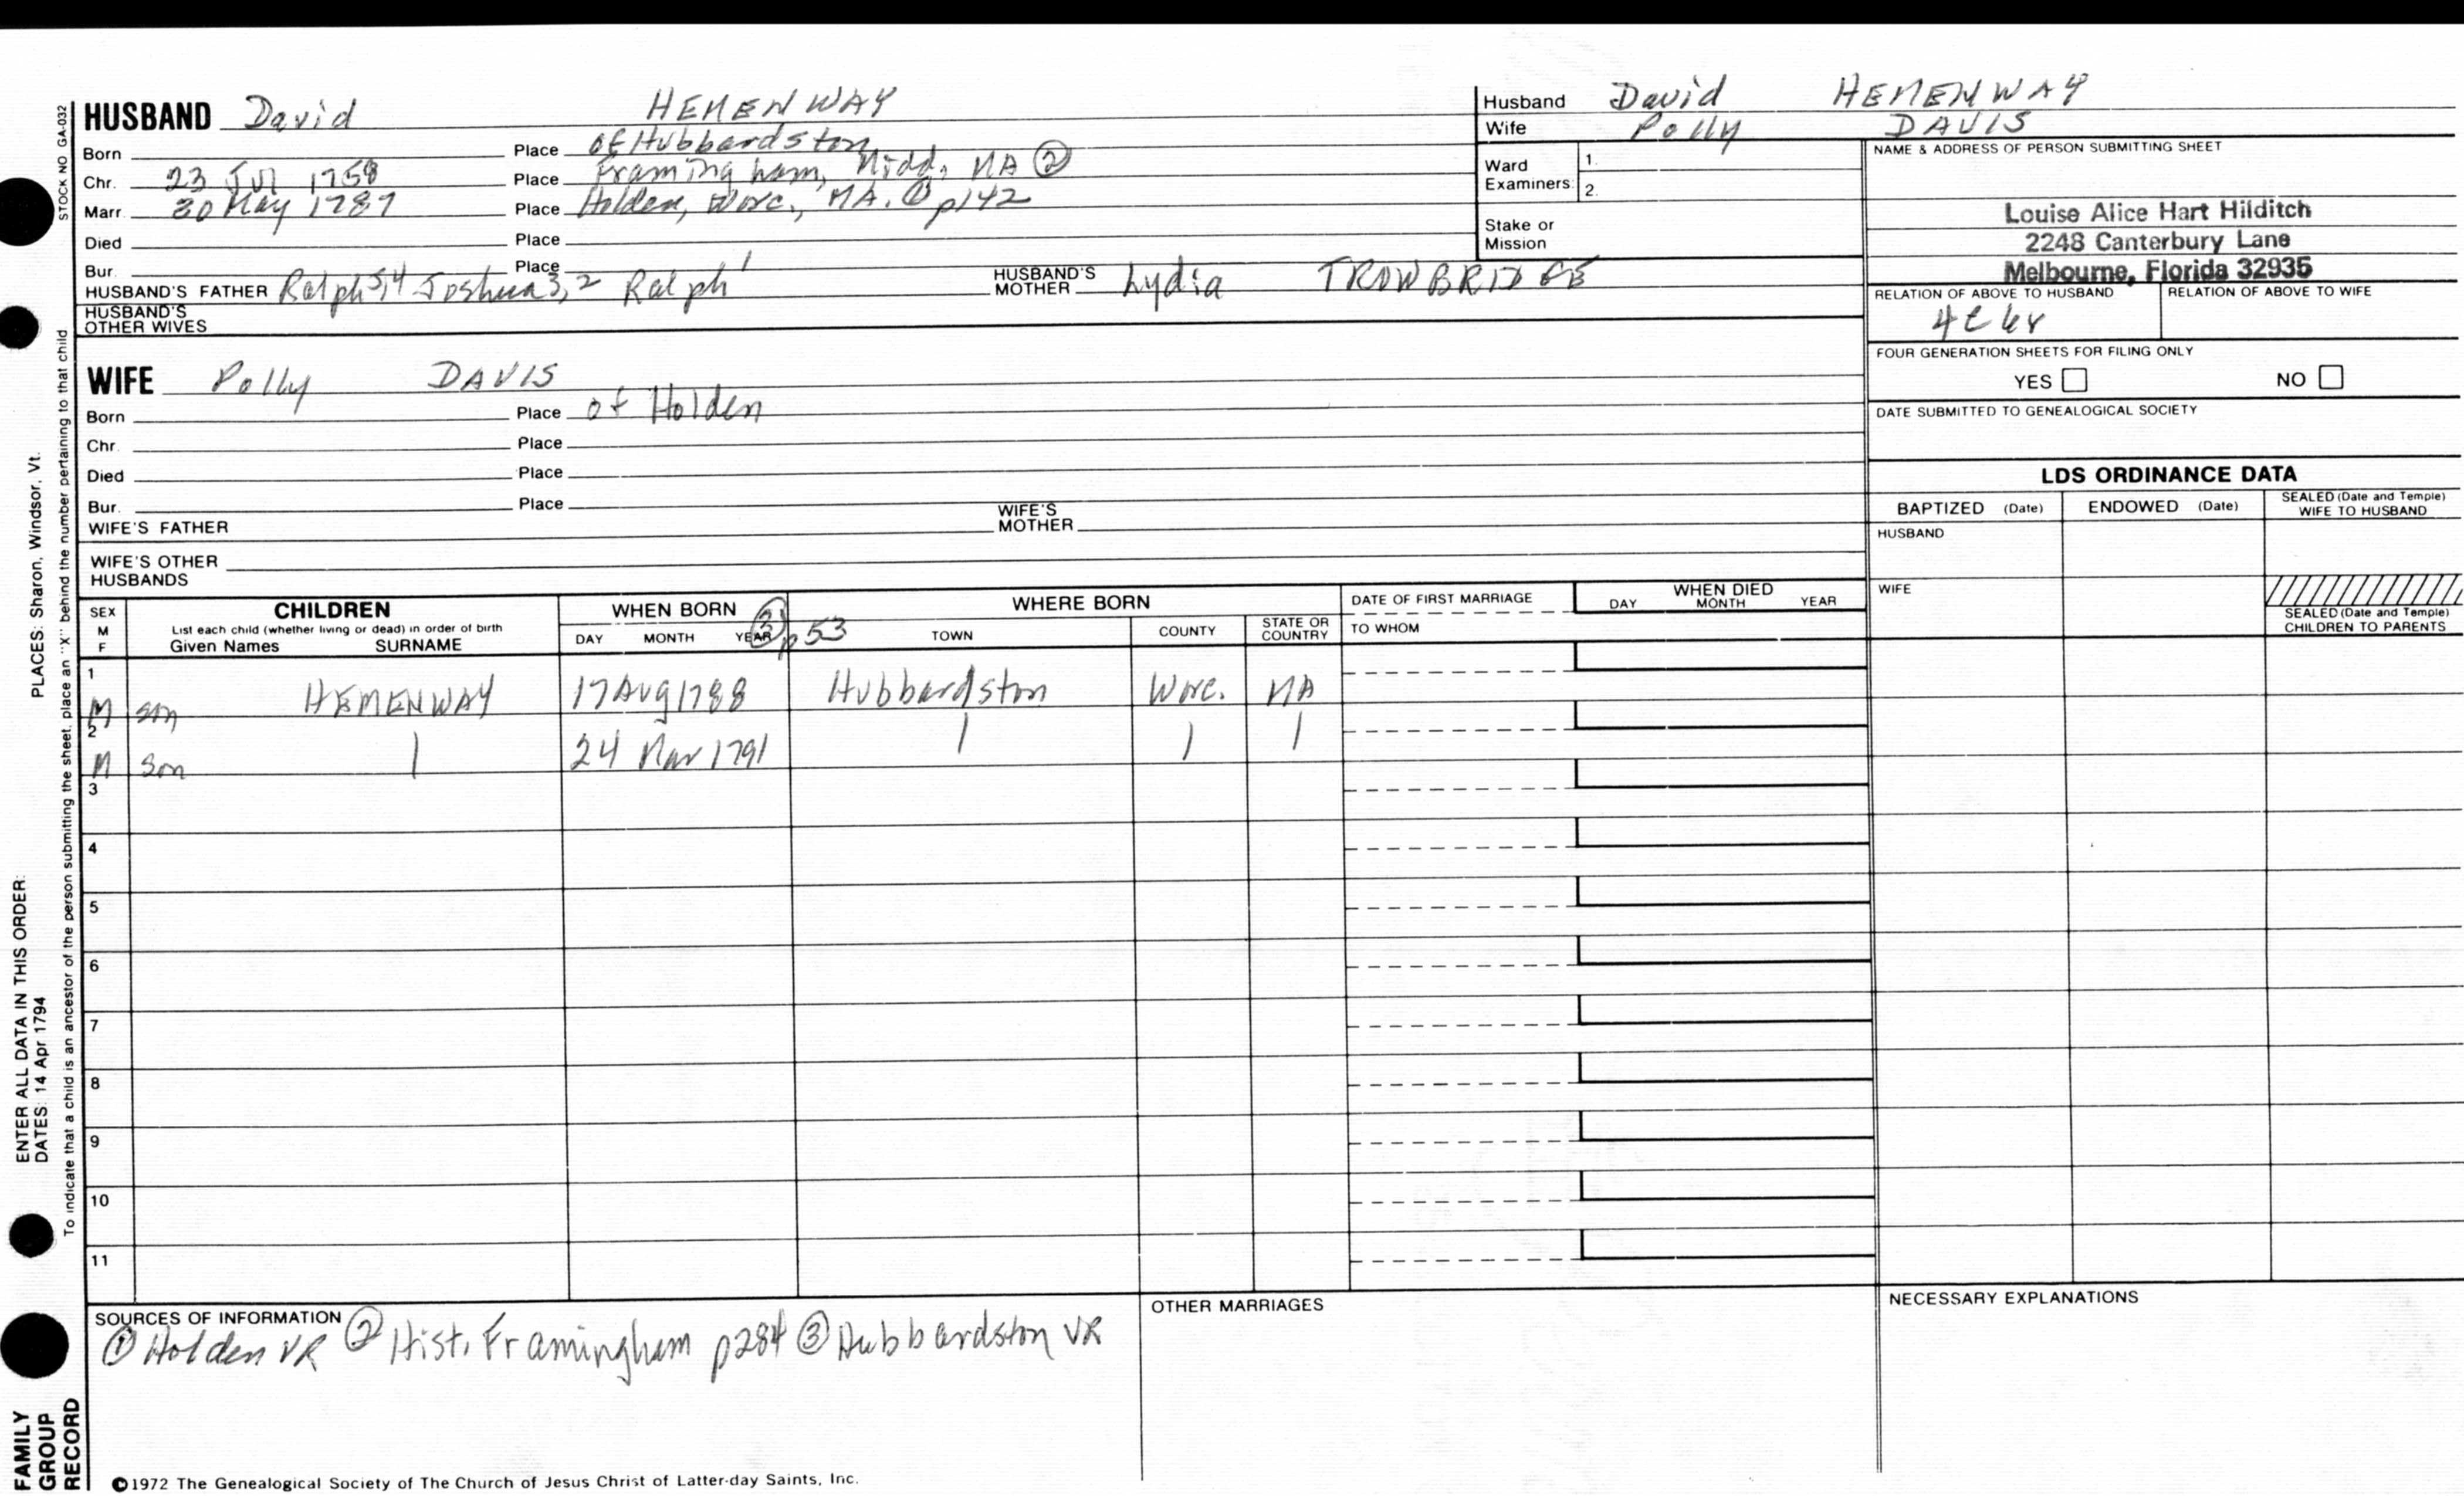 HUSBAND David HEMENWAY
Born Place of Hubbardston,
Chr. 23 Jul 1758 Place Framingham, Midd, MA ②
Marr. 30 May 1787 Place Holden, Worc., MA. ① p142
Died Place
Bur. Place
HUSBAND'S FATHER Ralph 5,4 Joshua 3,2 Ralph 1 HUSBAND'S MOTHER Lydia TROWBRIDGE
HUSBAND'S OTHER WIVES
WIFE Polly DAVIS
Born Place of Holden
Chr. Place
Died Place
Bur. Place
WIFE'S FATHER WIFE'S MOTHER
WIFE'S OTHER HUSBANDS
Husband David HEMENWAY
Wife Polly DAVIS
Ward Examiners: 1.
2.
Stake or Mission
NAME & ADDRESS OF PERSON SUBMITTING SHEET
Louise Alice Hart Hilditch
2248 Canterbury Lane
Melbourne, Florida 32935
RELATION OF ABOVE TO HUSBAND RELATION OF ABOVE TO WIFE
FOUR GENERATION SHEETS FOR FILING ONLY
YES NO
DATE SUBMITTED TO GENEALOGICAL SOCIETY
LDS ORDINANCE DATA
BAPTIZED (Date) ENDOWED (Date) SEALED (Date and Temple) WIFE TO HUSBAND
HUSBAND
WIFE
SEALED (Date and Temple) CHILDREN TO PARENTS
SEX M F CHILDREN WHEN BORN WHERE BORN DATE OF FIRST MARRIAGE WHEN DIED
List each child (whether living or dead) in order of birth
Given Names SURNAME DAY MONTH YEAR ③ p53 TOWN COUNTY STATE OR COUNTRY TO WHOM DAY MONTH YEAR
1 M son HEMENWAY 17 Aug 1788 Hubbardston Worc. MA
2 M son | 24 Mar 1791 | | |
3
4
5
6
7
8
9
10
11
SOURCES OF INFORMATION
① Holden VR ② Hist. Framingham p284 ③ Hubbardston VR
OTHER MARRIAGES
NECESSARY EXPLANATIONS
©1972 The Genealogical Society of The Church of Jesus Christ of Latter-day Saints, Inc.
STOCK NO GA-032
To indicate that a child is an ancestor of the person submitting the sheet, place an "X" behind the number pertaining to that child
ENTER ALL DATA IN THIS ORDER:
DATES: 14 Apr 1794 PLACES: Sharon, Windsor, Vt.
FAMILY GROUP RECORD